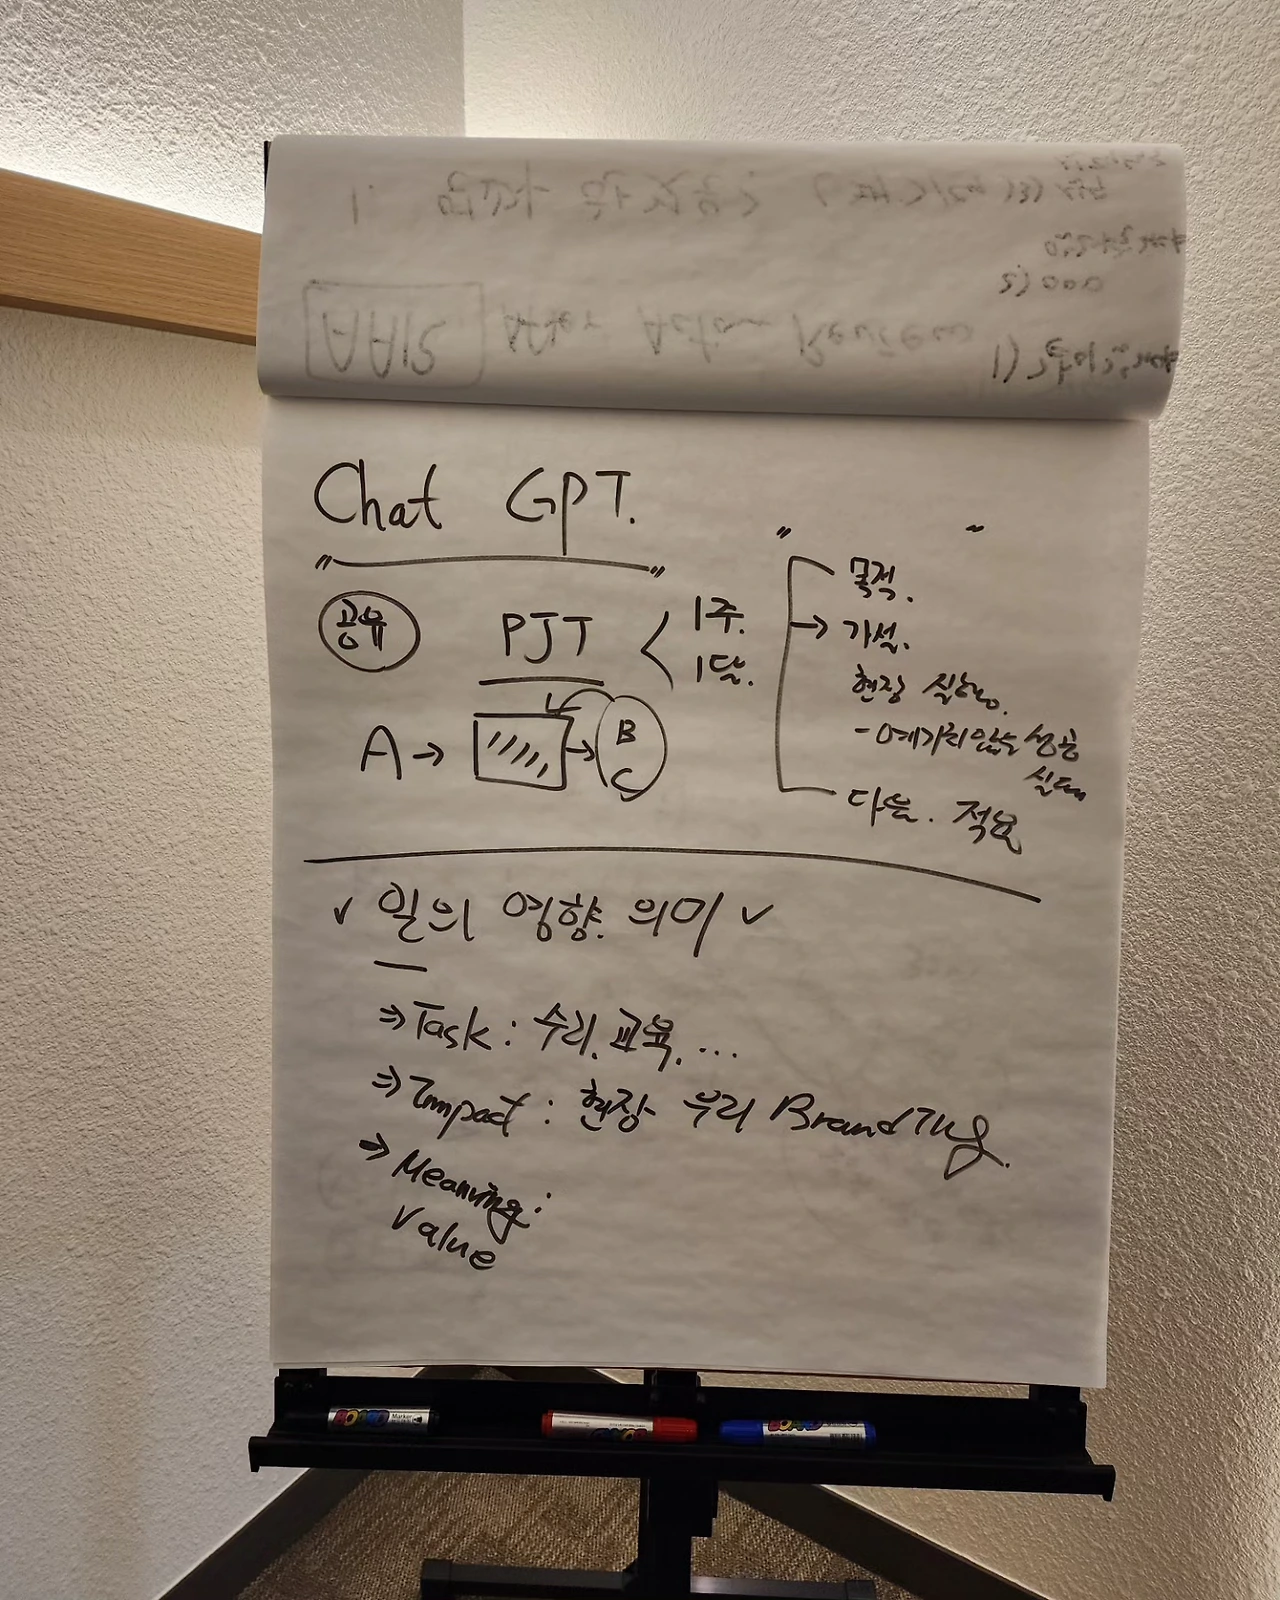 AAR After Action Review
Chat GPT.
공유 PJT 1주.
1달.
A → B
C
목적.
→ 가설.
현장 실행.
- 예기치 않은 성공
실패
다음. 적용
✓ 일의 영향. 의미 ✓
⇒ Task : 수리. 교육. ...
⇒ Impact : 현장 우리 Branding.
⇒ Meaning :
Value
BOARD Marker
BOARD